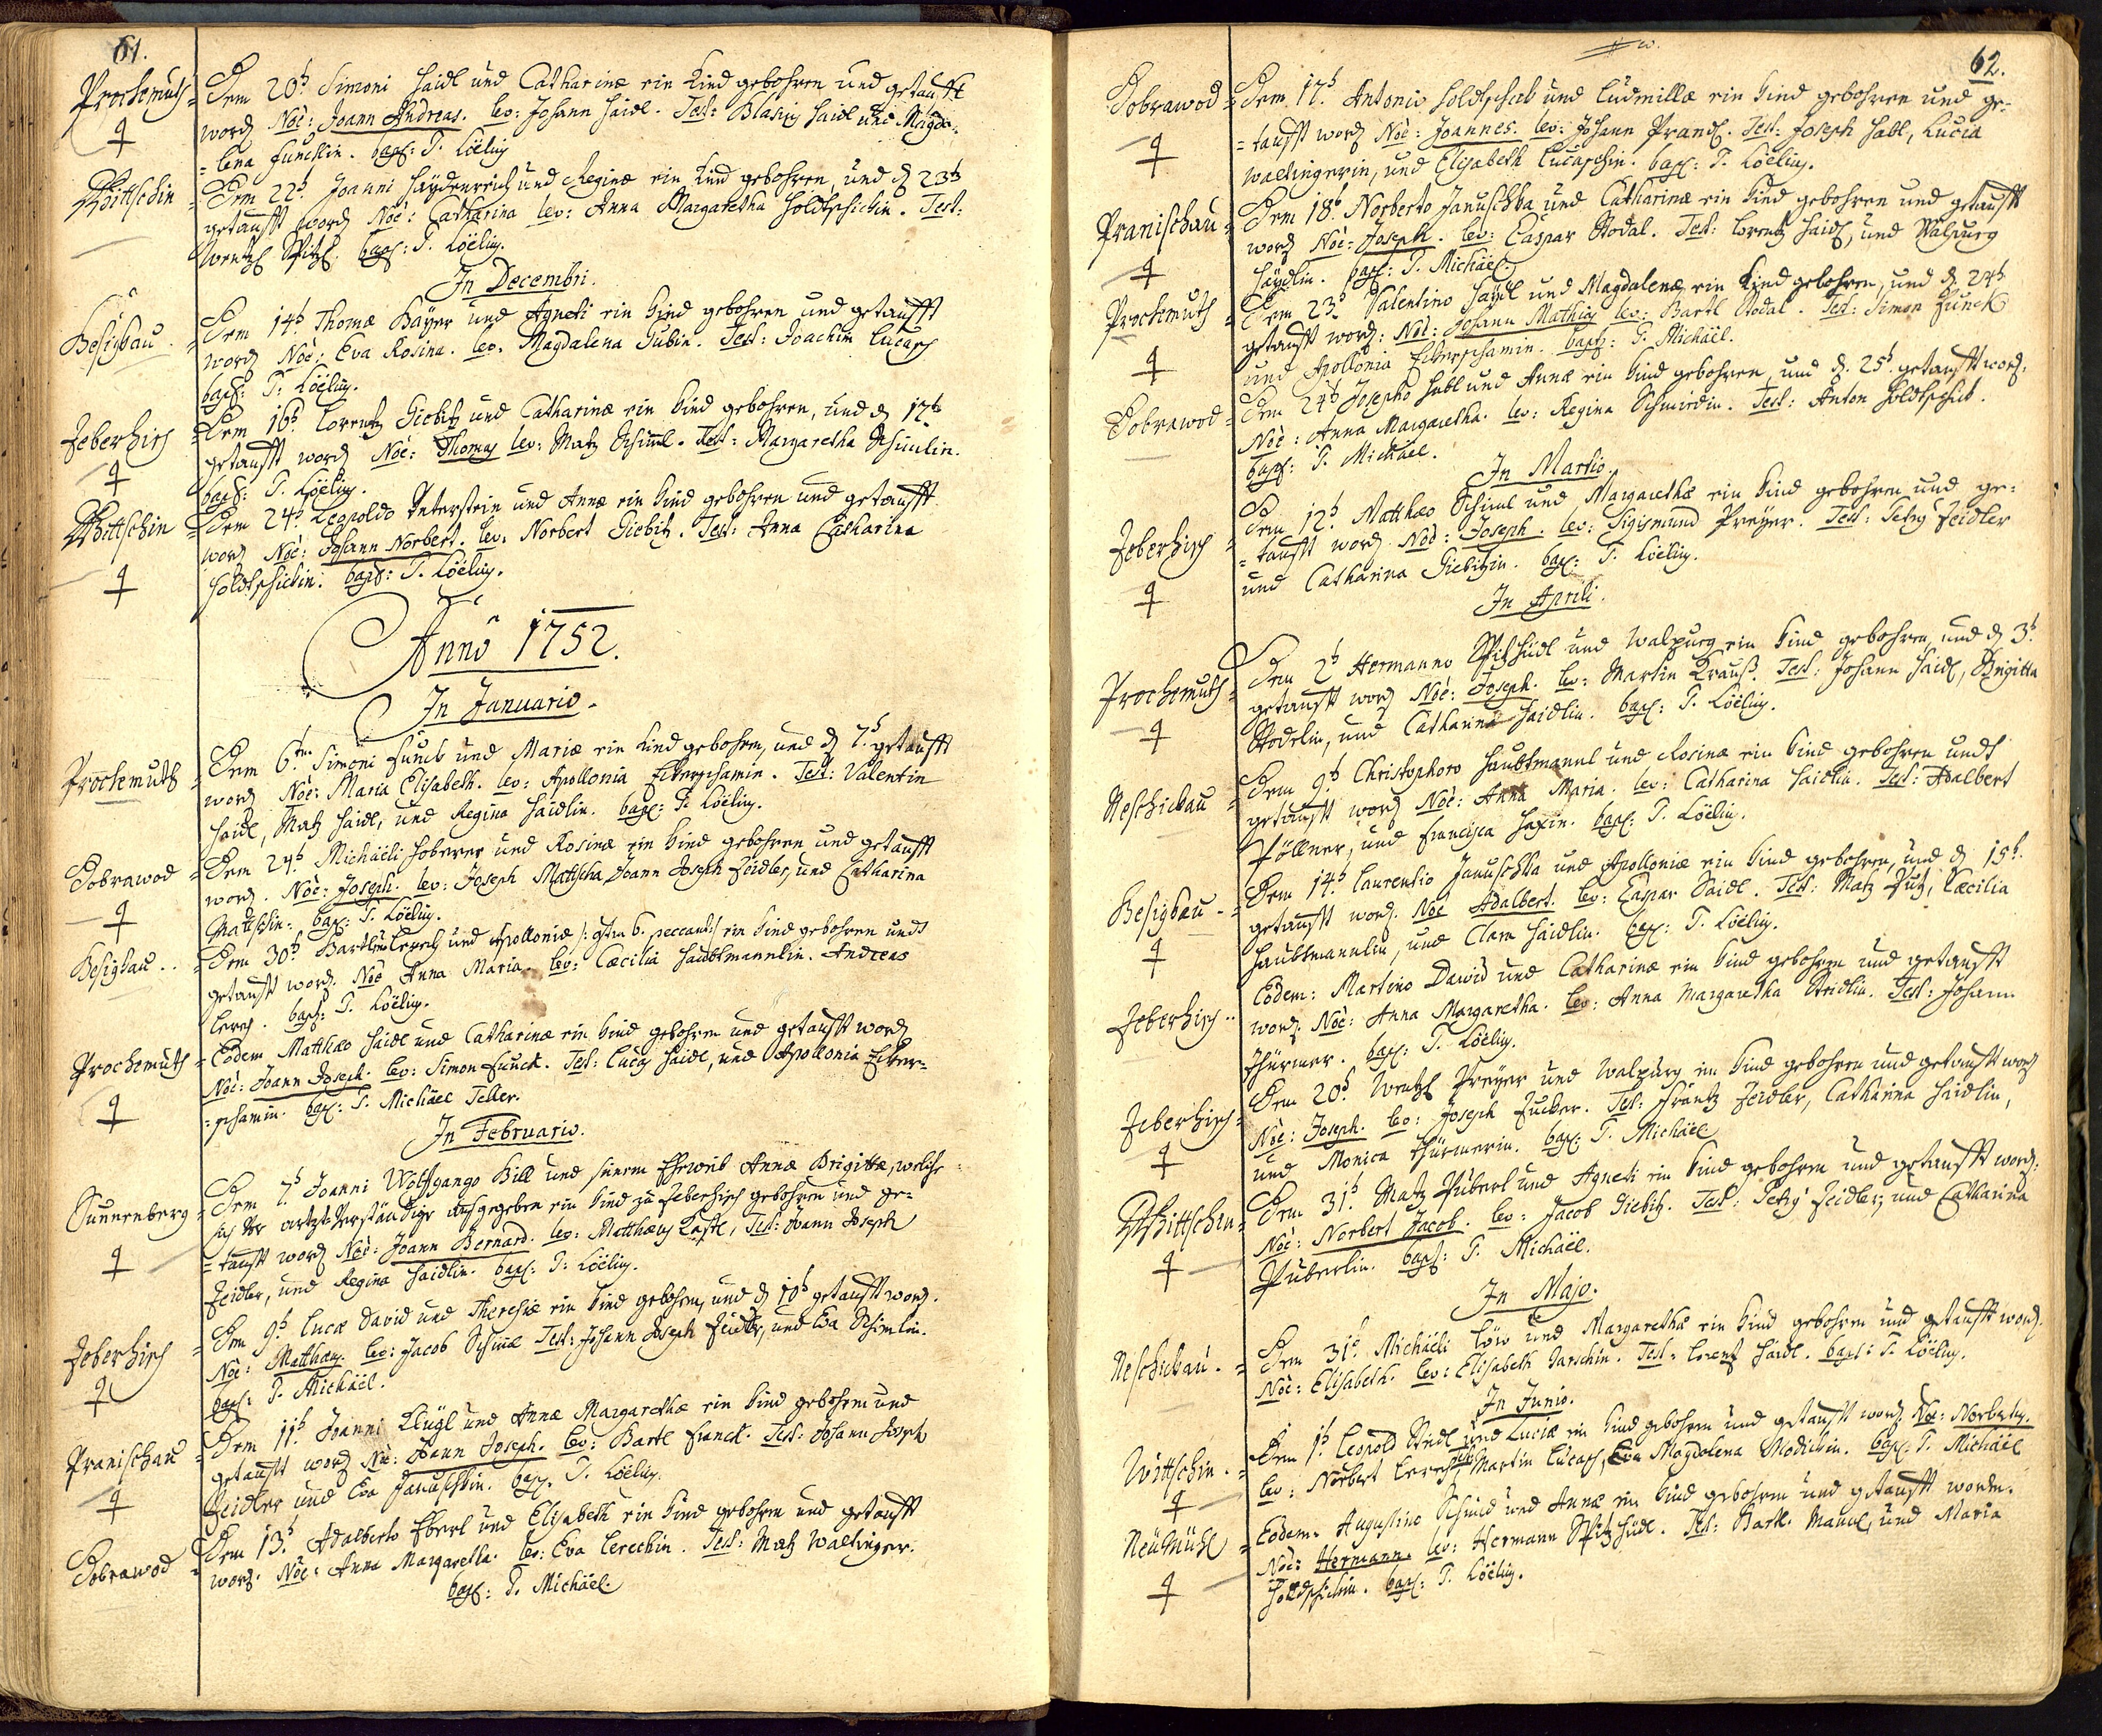 61.
Prochomuth = Dem 20t Simoni Haidl und Catharinæ ein Kind gebohren und getaufft
word Noè: Joann Andreas. lev: Johann Haidl. Test: Blasig Haidl und Magda-
= lena Funckin. bapt: P. Löelig
Wittschin = Dem 22t Joanni Haydenreich und Reginæ ein Kind gebohren und d 23t
getaufft word Noè: Catharina lev: Anna Margaretha Holdtschickin. Test:
Wentzl Spitzl. bapt: P. Löelig.
In Decembri.
Besigkau = Dem 14t Thomæ Bayer und Agneti ein Kind gebohren und getaufft
word Noè: Eva Rosina. lev: Magdalena Gubin. Test: Joachim Lucasch
bapt: P. Löelig.
Zeberhisch = Dem 16t Lorentz Giebitz und Catharinæ ein Kind gebohren, und d 17t
getaufft word Noè: Thomas lev: Matz Schiml. Test: Margaretha Schimlin.
bapt: P. Löelig.
Wittschin = Dem 24t Leopoldo Unterstein und Annæ ein Kind gebohren und getaufft
word Noè: Johann Norbert. lev: Norbert Giebitz. Test: Anna Catharina
Holdtschickin. bapt: P. Löelig.
Annô 1752.
In Januario.
Prochomuth = Dem 6ten Simoni Funck und Mariæ ein Kind gebohren, und d 7t getaufft
word Noè: Maria Elisabeth. lev: Apollonia Ekerschamin. Test: Valentin
Haidl, Matz Haidl, und Regina Haidlin. bapt: P. Löelig.
Dobrawod = Dem 24t Michäeli Hoberer und Rosinæ ein Kind gebohren und getaufft
word. Noè: Joseph. lev: Joseph Mattscha, Joann Joseph Zeidler, und Catharina
Mattschin. bapt: P. Löelig.
Besigkau .. = Dem 30t Lerch und Apolloniæ /: peccant :/ ein Kind gebohren und
getaufft word. Noè Anna Maria. lev: Cæcilia Haubtmannlin. Andreas
Lerch. bapt: P. Löelig.
Prochomuth = Eodem Matthæo Haidl und Catharinæ ein Kind gebohren und getaufft word
Noè: Joann Joseph. lev: Simon Funck. Test: Lucas Haidl, und Apollonia Eker-
= schamin. bapt: P. Michäel Teller.
In Februario.
Sunnenberg = Dem 7t Joanni Wolffgango Hill und seinem Eheweib Annæ Brigittæ, welche
sich der artzt Verständige ausgegeben ein Kind zu Zeberhisch gebohren und ge-
= taufft word Noè: Joann Bernard. lev: Matthæus Castl, Test: Joann Joseph
Zeidler, und Regina Haidlin. bapt: P. Löelig.
Zeberhisch = Dem 9t Lucæ David und Theresiæ ein Kind gebohren, und d 10t getaufft word.
Noè: Matthæus. lev: Jacob Schiml Test: Johann Joseph Zeidler, und Eva Schimlin.
bapt: P. Michäel.
Pranischau = Dem 11t Joanni Klügl und Annæ Margarethæ ein Kind gebohren und
getaufft word Noè: Joann Joseph. lev: Bartl Franck. Test: Johann Joseph
Zeidler und Eva Januschkin. bapt. P. Löelig.
Dobrawod = Dem 13t Adalberto Eberl und Elisabeth ein Kind gebohren und getaufft
word. Noè: Anna Margaretha. lev: Eva Lerechin. Test: Matz Waltinger.
bapt: P. Michäel.
62.
Dobrawod = Dem 17t Antonio Holdtschek und Ludmillæ ein Kind gebohren und ge-
= taufft word Noè: Joannes. lev: Johann Prandl. Test: Joseph Habl, Lucia
Waltingerin, und Elisabeth Lucaschin. bapt: P. Löelig.
Pranischau = Dem 18t Norberto Januschka und Catharinæ ein Kind gebohren und getaufft
word Noè: Joseph. lev: Caspar Stodal. Test: Lorentz Haidl, und Walpurg
Haydlin. bapt: P. Michäel.
Prochomuth = Dem 23t Valentino Haydl und Magdalenæ ein Kind gebohren, und d 24t
getaufft word: Noè: Johann Mathias lev: Bartl Stodal. Test: Simon Funck
und Apollonia Ekerschamin. bapt: P. Michäel.
Dobrawod = Dem 24t Josepho Habl und Annæ ein Kind gebohren, und d. 25t getaufft word:
Noè: Anna Margaretha. lev: Regina Schmidin. Test: Anton Holdtschek.
bapt: P. Michäel.
In Martio.
Zeberhisch = Dem 12t Matthæo Schiml und Margarethæ ein Kind gebohren und ge-
= taufft word Noè: Joseph. lev: Sigismund Preyer. Test: Petrg Zeidler
und Catharina Giebitzin. bapt: P. Löelig.
In Aprili.
Prochomuth = Dem 2t Hermanno Spitzhüdl und Walpurg ein Kind gebohren, und d 3t
getaufft word Noè: Joseph. lev: Martin Krauß. Test: Johann Haidl, Brigitta
Stodelin, und Catharina Haidlin. bapt: P. Löelig.
Neschickau = Dem 9t Christophoro Haubtmannl und Rosinæ ein Kind gebohren und
getaufft word Noè: Anna Maria. lev: Catharina Haidlin. Test: Adalbert
Pöllner, und Francisca Haxin. bapt: P. Löelig.
Besigkau - = Dem 14t Laurentio Januschka und Apolloniæ ein Kind gebohren, und d 15t.
getaufft word. Noè Adalbert. lev: Caspar Haidl. Test: Matz Putz, Cæcilia
Haubtmannlin, und Clara Haidlin. bapt: P. Löelig.
Zeberhisch .. Eodem: Martino Dawid und Catharinæ ein Kind gebohren und getaufft
word. Noè: Anna Margaretha. lev: Anna Margaretha Stridlin. Test: Johann
Thürmer. bapt: P. Löelig.
Zeberhisch = Dem 20t Wentzl Preyer und Walpurg ein Kind gebohren und getaufft word
Noè: Joseph. lev: Joseph Zucker. Test: Frantz Zeidler, Catharina Haidlin,
und Monica Thürmerin. bapt: P. Michäel
Wittschin = Dem 31t Matz Püberl und Agneti ein Kind gebohren und getaufft word:
Noè: Norbert Jacob. lev: Jacob Giebitz. Test: Petrg Zeidler, und Catharina
Püberlin. bapt: P. Michäel.
In Majo.
Neschickau. = Dem 31t Michäeli Löw und Margarethæ ein Kind gebohren und getaufft word.
Noè: Elisabeth. lev: Elisabeth Jarschin. Test: Lorentz Haidl. bapt: P. Löelig.
In Junio.
Wittschin. = Dem 1t Leopold Stridl und Luciæ ein Kind gebohren und getaufft word. Noè: Norbertus.
lev: Norbert Lerch, Test: Martin Lucasch, Eva Magdalena Modickin. bapt: P. Michäel
Neümühl = Eodem. Augustino Schmid und Annæ ein Kind gebohren und getaufft worden.
Noè: Hermann. lev: Hermann Spitzhüdl. Test: Bartl. Manul, und Maria
Holdtschickin. bapt: P. Löelig.